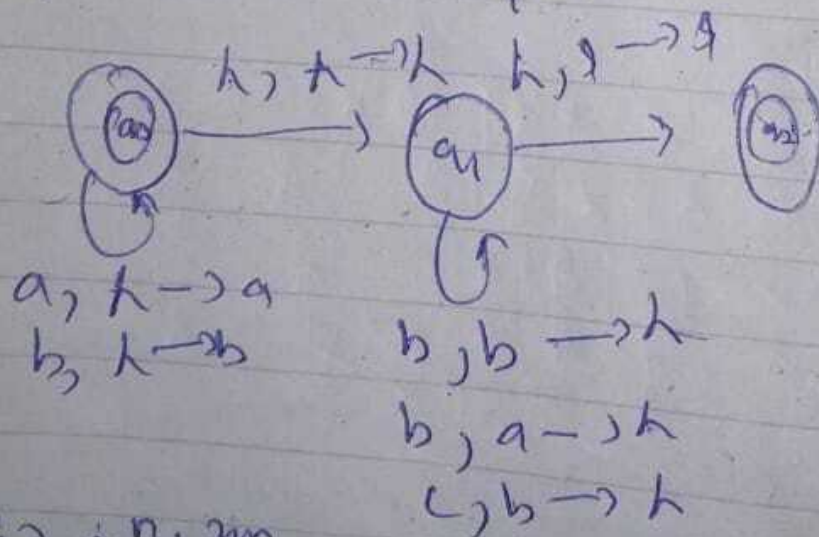 λ, λ → λ λ, $ → $
q0 q1 q2
a, λ → a
b, λ → b
b, b → λ
b, a → λ
c, b → λ